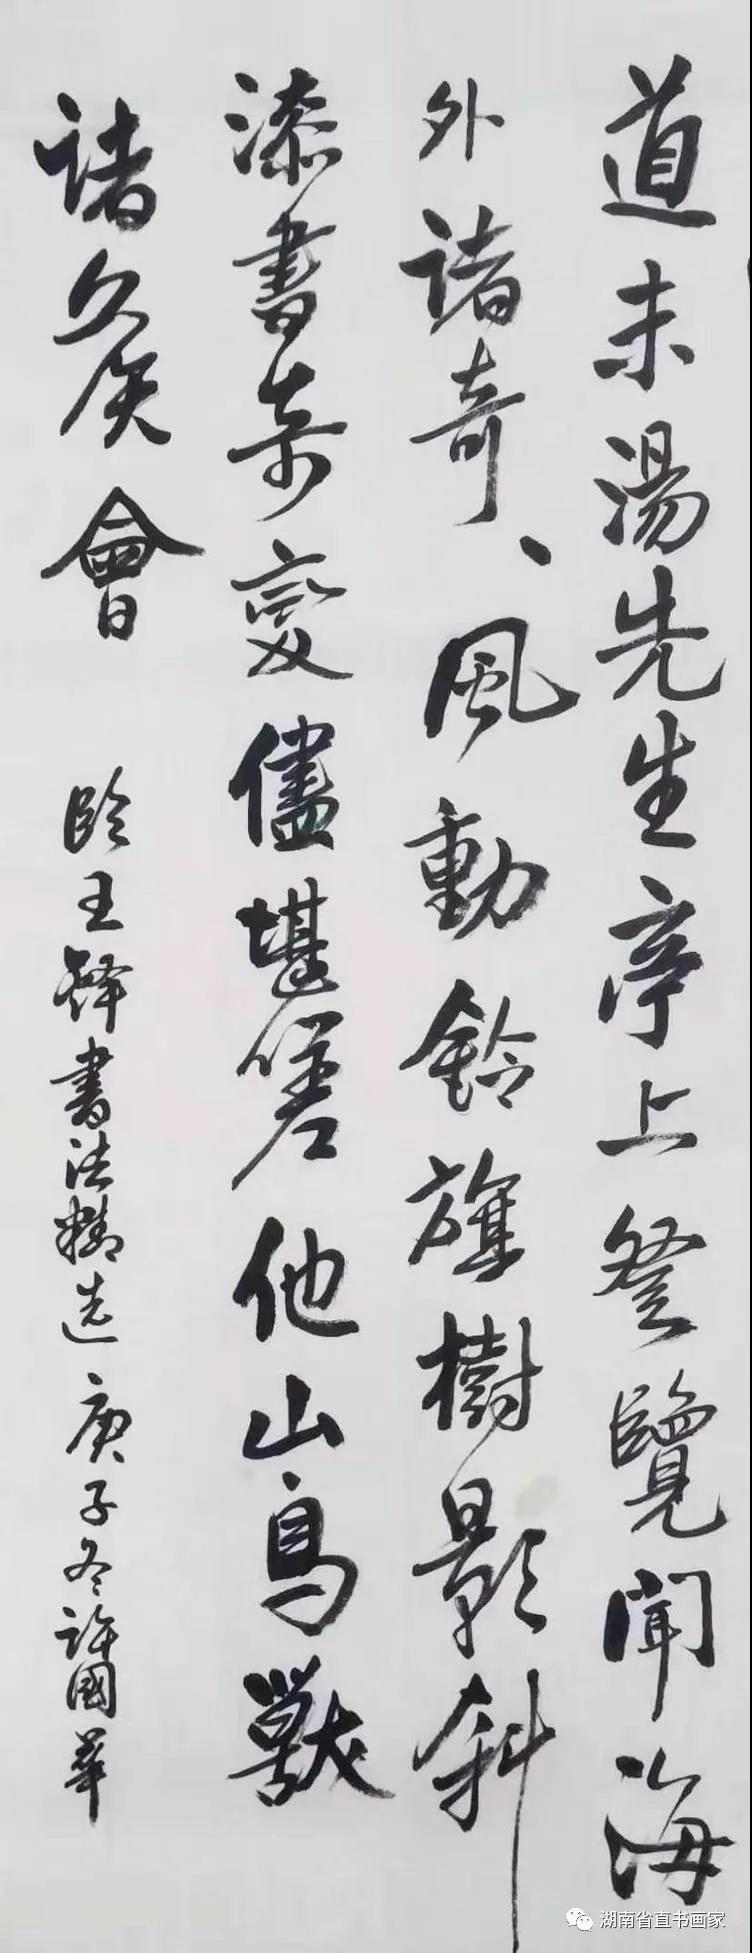 道未湯先生亭上登覽聞海
外諸奇、風動鈴旗樹影斜
漆書奇變儘堪嗟他山鳥獸
諸侯會
臨王鐸書法精选庚子冬許國華
湖南省直书画家